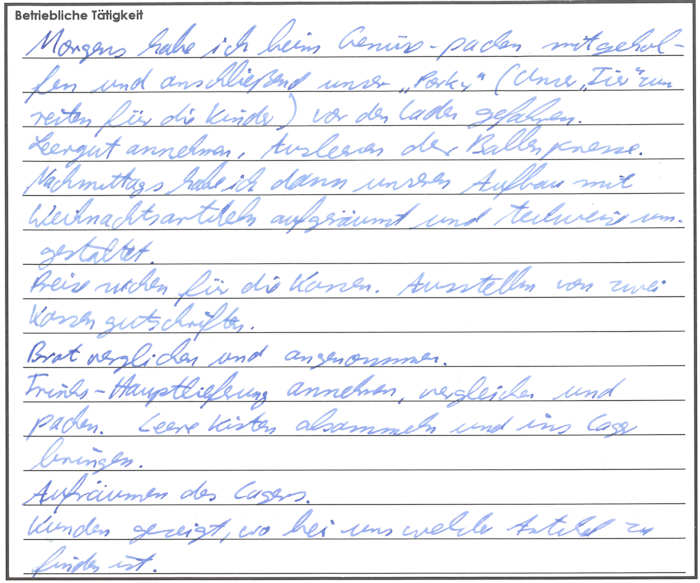 Betriebliche Tätigkeit
Morgens habe ich beim Gemüse-packen mitgehol-
fen und anschließend unser „Porky“ (Unser „Tier“ zum
reiten für die Kinder) vor den Laden gefahren.
Leergut annehmen, Ausleeren der Ballenpresse.
Nachmittags habe ich dann unseren Aufbau mit
Weihnachtsartikeln aufgeräumt und teilweise um-
gestaltet.
Preise suchen für die Kassen. Ausstellen von zwei
Kassengutschriften.
Brot verglichen und angenommen.
Frisch-Hauptlieferung annehmen, vergleichen und
packen. Leere Kisten absammeln und ins Lager
bringen.
Aufräumen des Lagers.
Kunden gezeigt, wo bei uns welcher Artikel zu
finden ist.